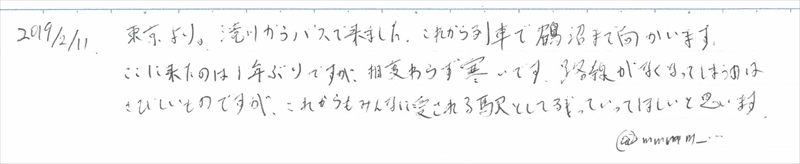 2019/2/11. 東京より。滝川からバスで来ました。これから列車で鶴沼まで向かいます。
ここに来たのは1年ぶりですが、相変わらず寒いです。路線がなくなってしまうのは
さびしいものですが、これからもみんなに愛される駅として残っていってほしいと思います